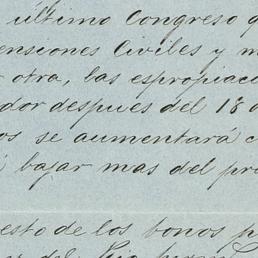 último Congreso q
ensiones Civiles y m
otra, las espropiac
dor despues del 18
os se aumentará c
bajar mas del pr
esto de los bonos p
del